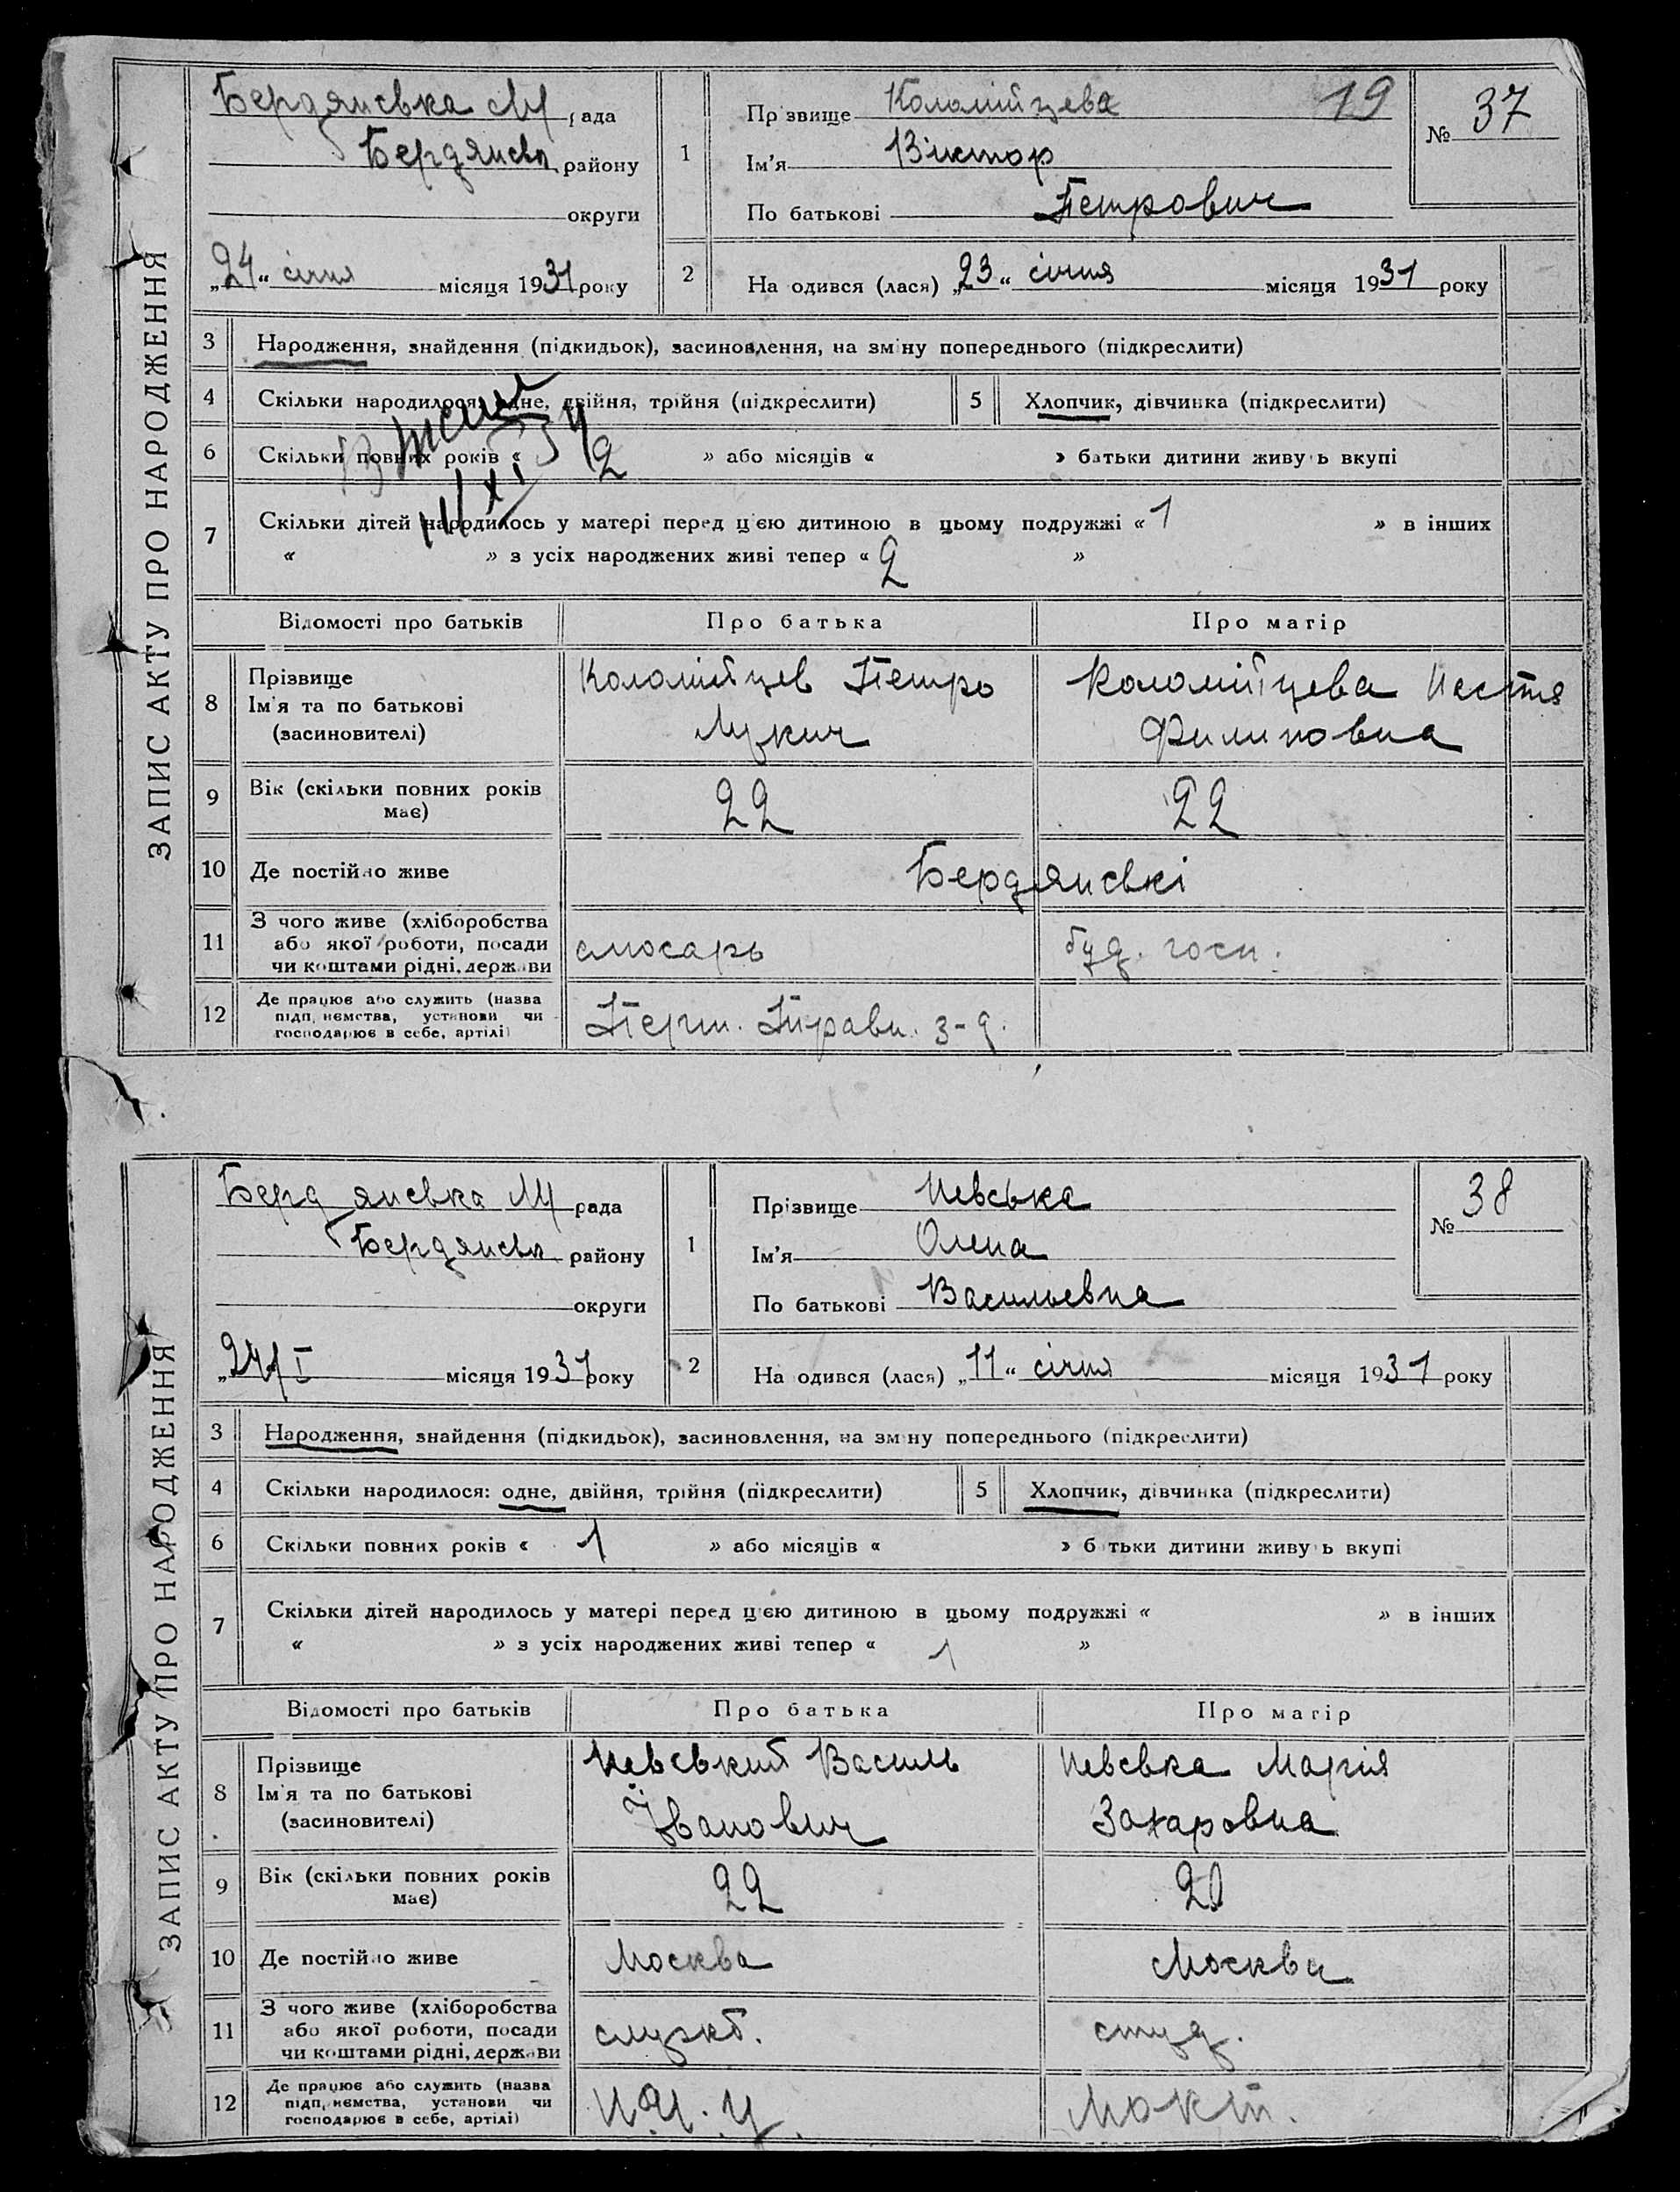 ЗАПИС АКТУ ПРО НАРОДЖЕННЯ
Бердянська М рада
Бердянськ району
округи
„24“ січня місяця 1931 року
1 Прізвище Коломійцева 19
Ім'я Віктор
По батькові Петрович
№ 37
2 Народився (лася) „23“ січня місяця 1931 року
3 Народження, знайдення (підкидьок), засиновлення, на зміну попереднього (підкреслити)
4 Скільки народилося: одне, двійня, трійня (підкреслити) 5 Хлопчик, дівчинка (підкреслити)
6 Скільки повних років « 2 » або місяців « » батьки дитини живуть вкупі
7 Скільки дітей народилось у матері перед цією дитиною в цьому подружжі « 1 » в інших
« » з усіх народжених живі тепер « 2 »
Відомості про батьків Про батька Про матір
8 Прізвище Ім'я та по батькові (засиновителі)
Коломійцев Петро Лукич
Коломійцева Настя Филиповна
9 Вік (скільки повних років має) 22 22
10 Де постійно живе Бердянські
11 З чого живе (хліборобства або якої роботи, посади чи коштами рідні, держави слюсарь буд. госп.
12 Де працює або служить (назва підприємства, установи чи господарює в себе, артілі) Перш. Травн. з-д.
ЗАПИС АКТУ ПРО НАРОДЖЕННЯ
Бердянська М рада
Бердянськ району
округи
„24/I місяця 1931 року
1 Прізвище Невська
Ім'я Олена
По батькові Васильевна
№ 38
2 Народився (лася) „11“ січня місяця 1931 року
3 Народження, знайдення (підкидьок), засиновлення, на зміну попереднього (підкреслити)
4 Скільки народилося: одне, двійня, трійня (підкреслити) 5 Хлопчик, дівчинка (підкреслити)
6 Скільки повних років « 1 » або місяців « » батьки дитини живуть вкупі
7 Скільки дітей народилось у матері перед цією дитиною в цьому подружжі « » в інших
« » з усіх народжених живі тепер « 1 »
Відомості про батьків Про батька Про матір
8 Прізвище Ім'я та по батькові (засиновителі)
Невський Василь Їванович
Невська Марія Захаровна
9 Вік (скільки повних років має) 22 20
10 Де постійно живе Москва Москва
11 З чого живе (хліборобства або якої роботи, посади чи коштами рідні, держави служб. студ.
12 Де працює або служить (назва підприємства, установи чи господарює в себе, артілі)